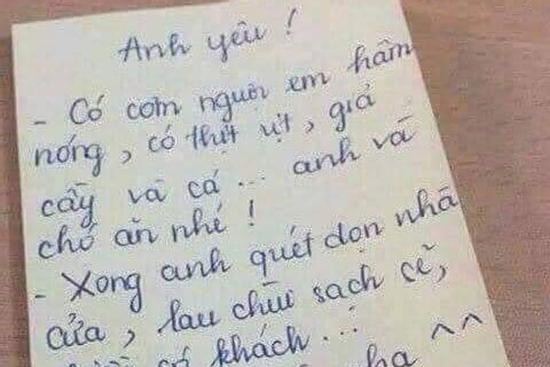 Anh yêu !
- Có cơm nguội em hâm
nóng, có thịt vịt, giả
cầy và cá ... anh và
chó ăn nhé !
- Xong anh quét dọn nhà
cửa, lau chùi sạch sẽ,
có khách...
ha ^^